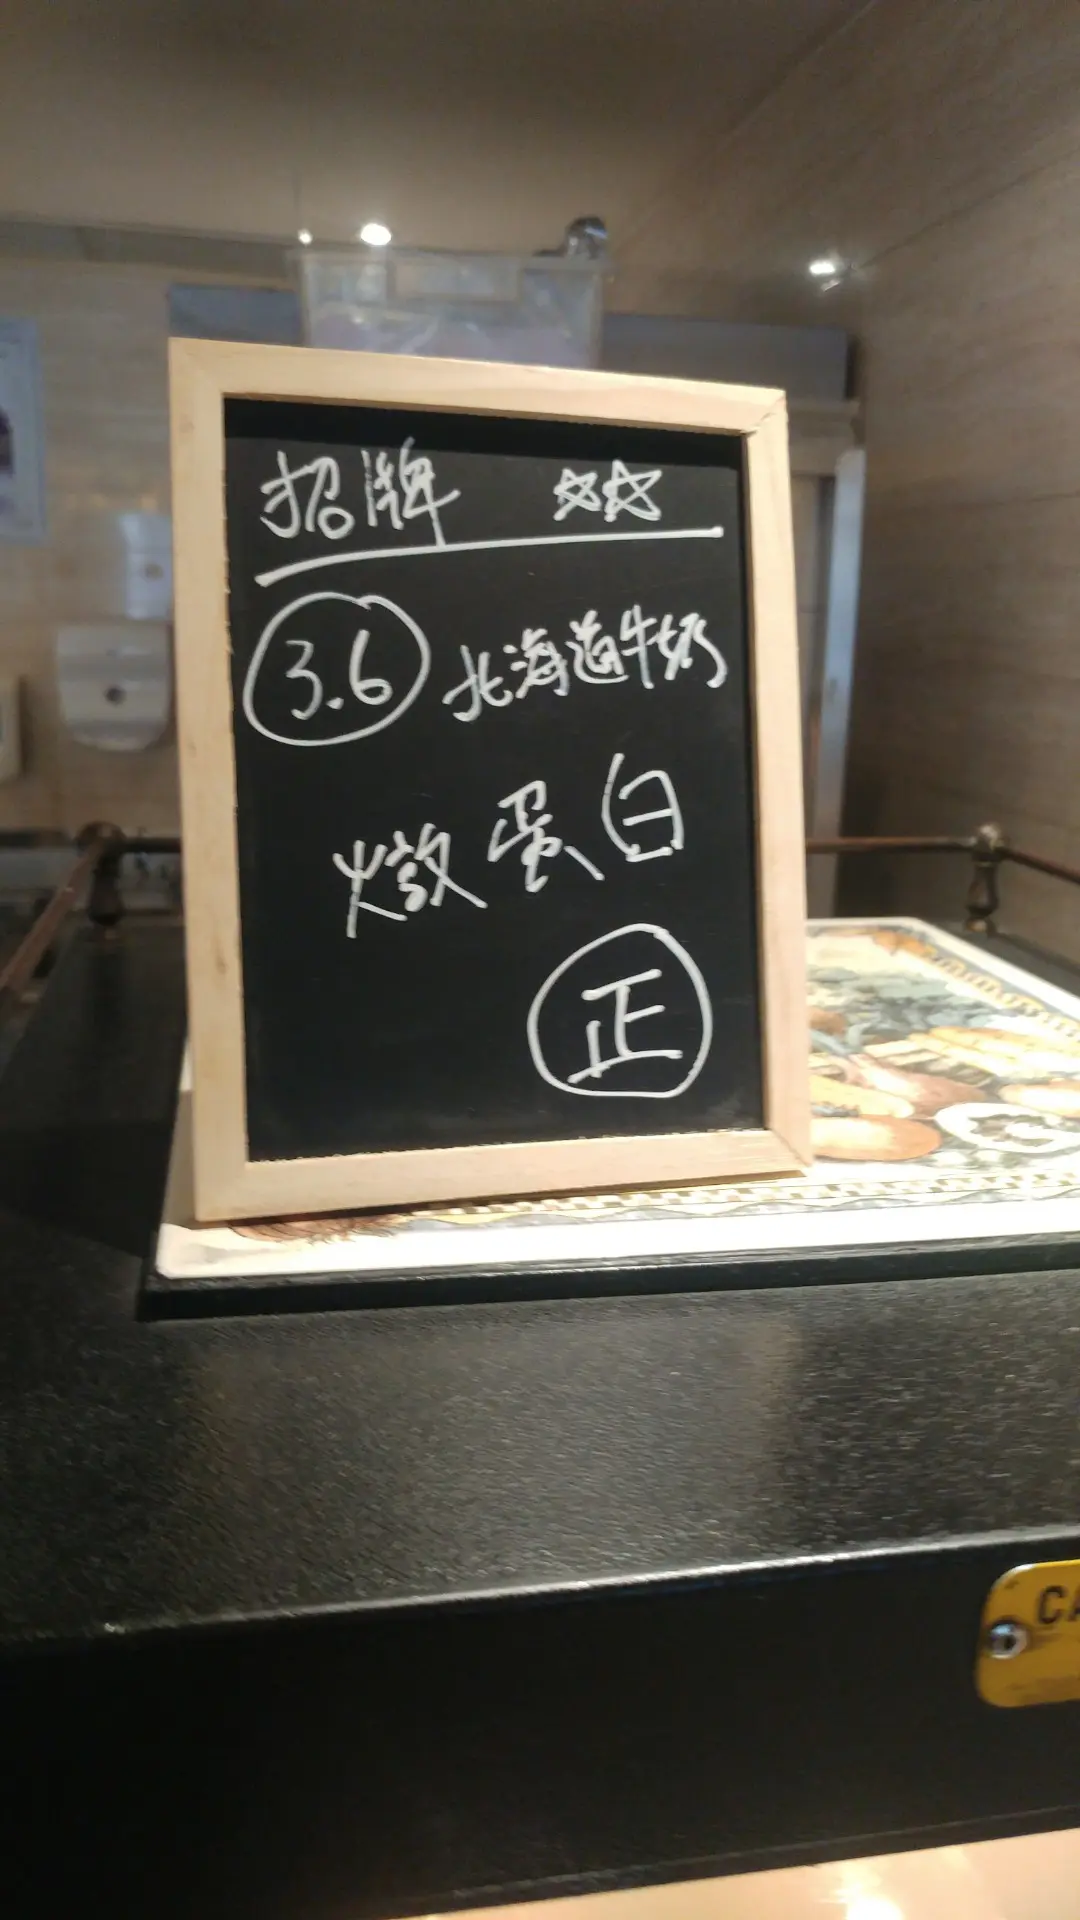 招牌 ☆☆
3.6 北海道牛奶
燉蛋白
正
CA